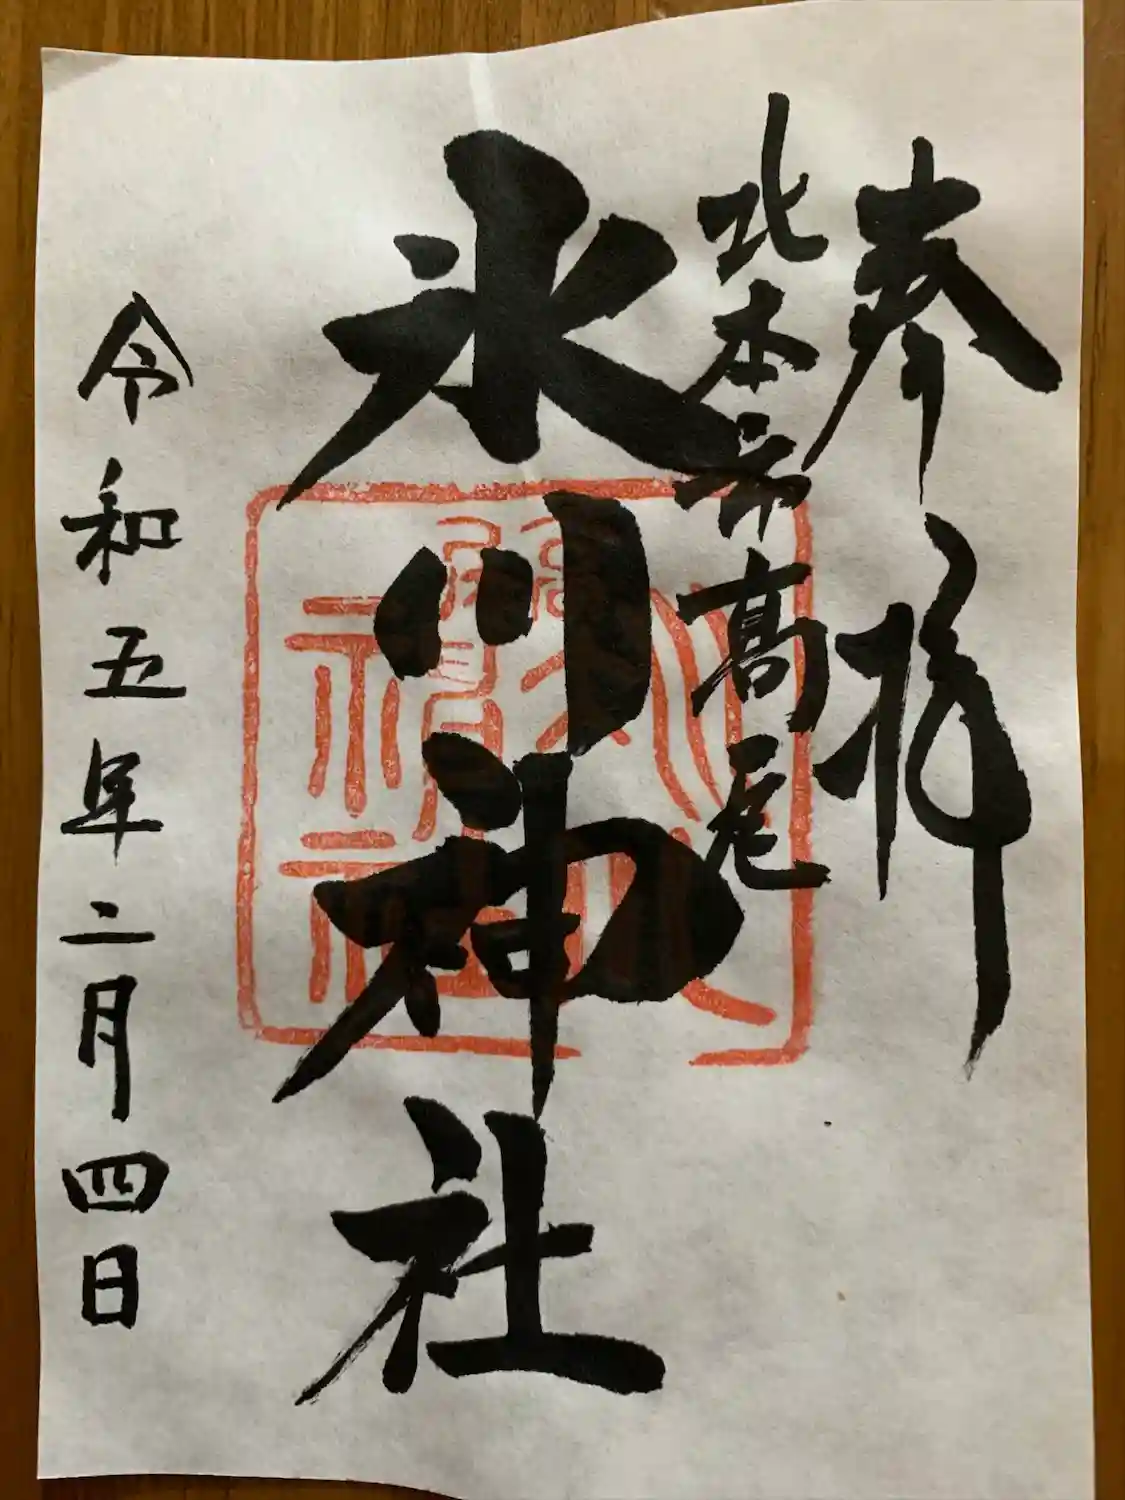 奉拝
北本市高尾
氷川神社
令和五年二月四日